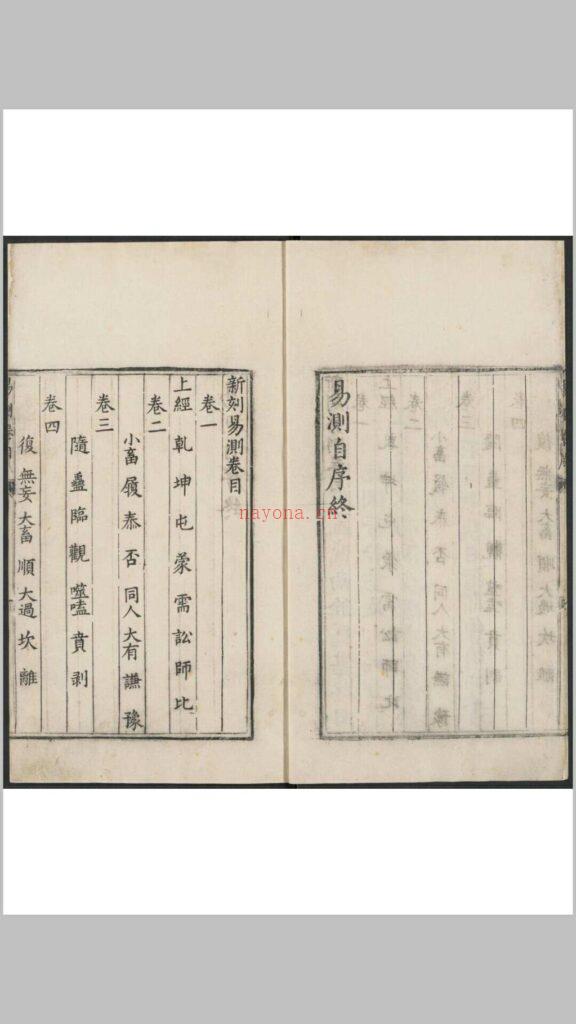 易測自序終
新刻易測卷目
卷一
上經 乾 坤 屯 蒙 需 訟 師 比
卷二
小畜 履 泰 否 同人 大有 謙 豫
卷三
隨 蠱 臨 觀 噬嗑 賁 剥
卷四
復 無妄 大畜 順 大過 坎 離
nayona.cn